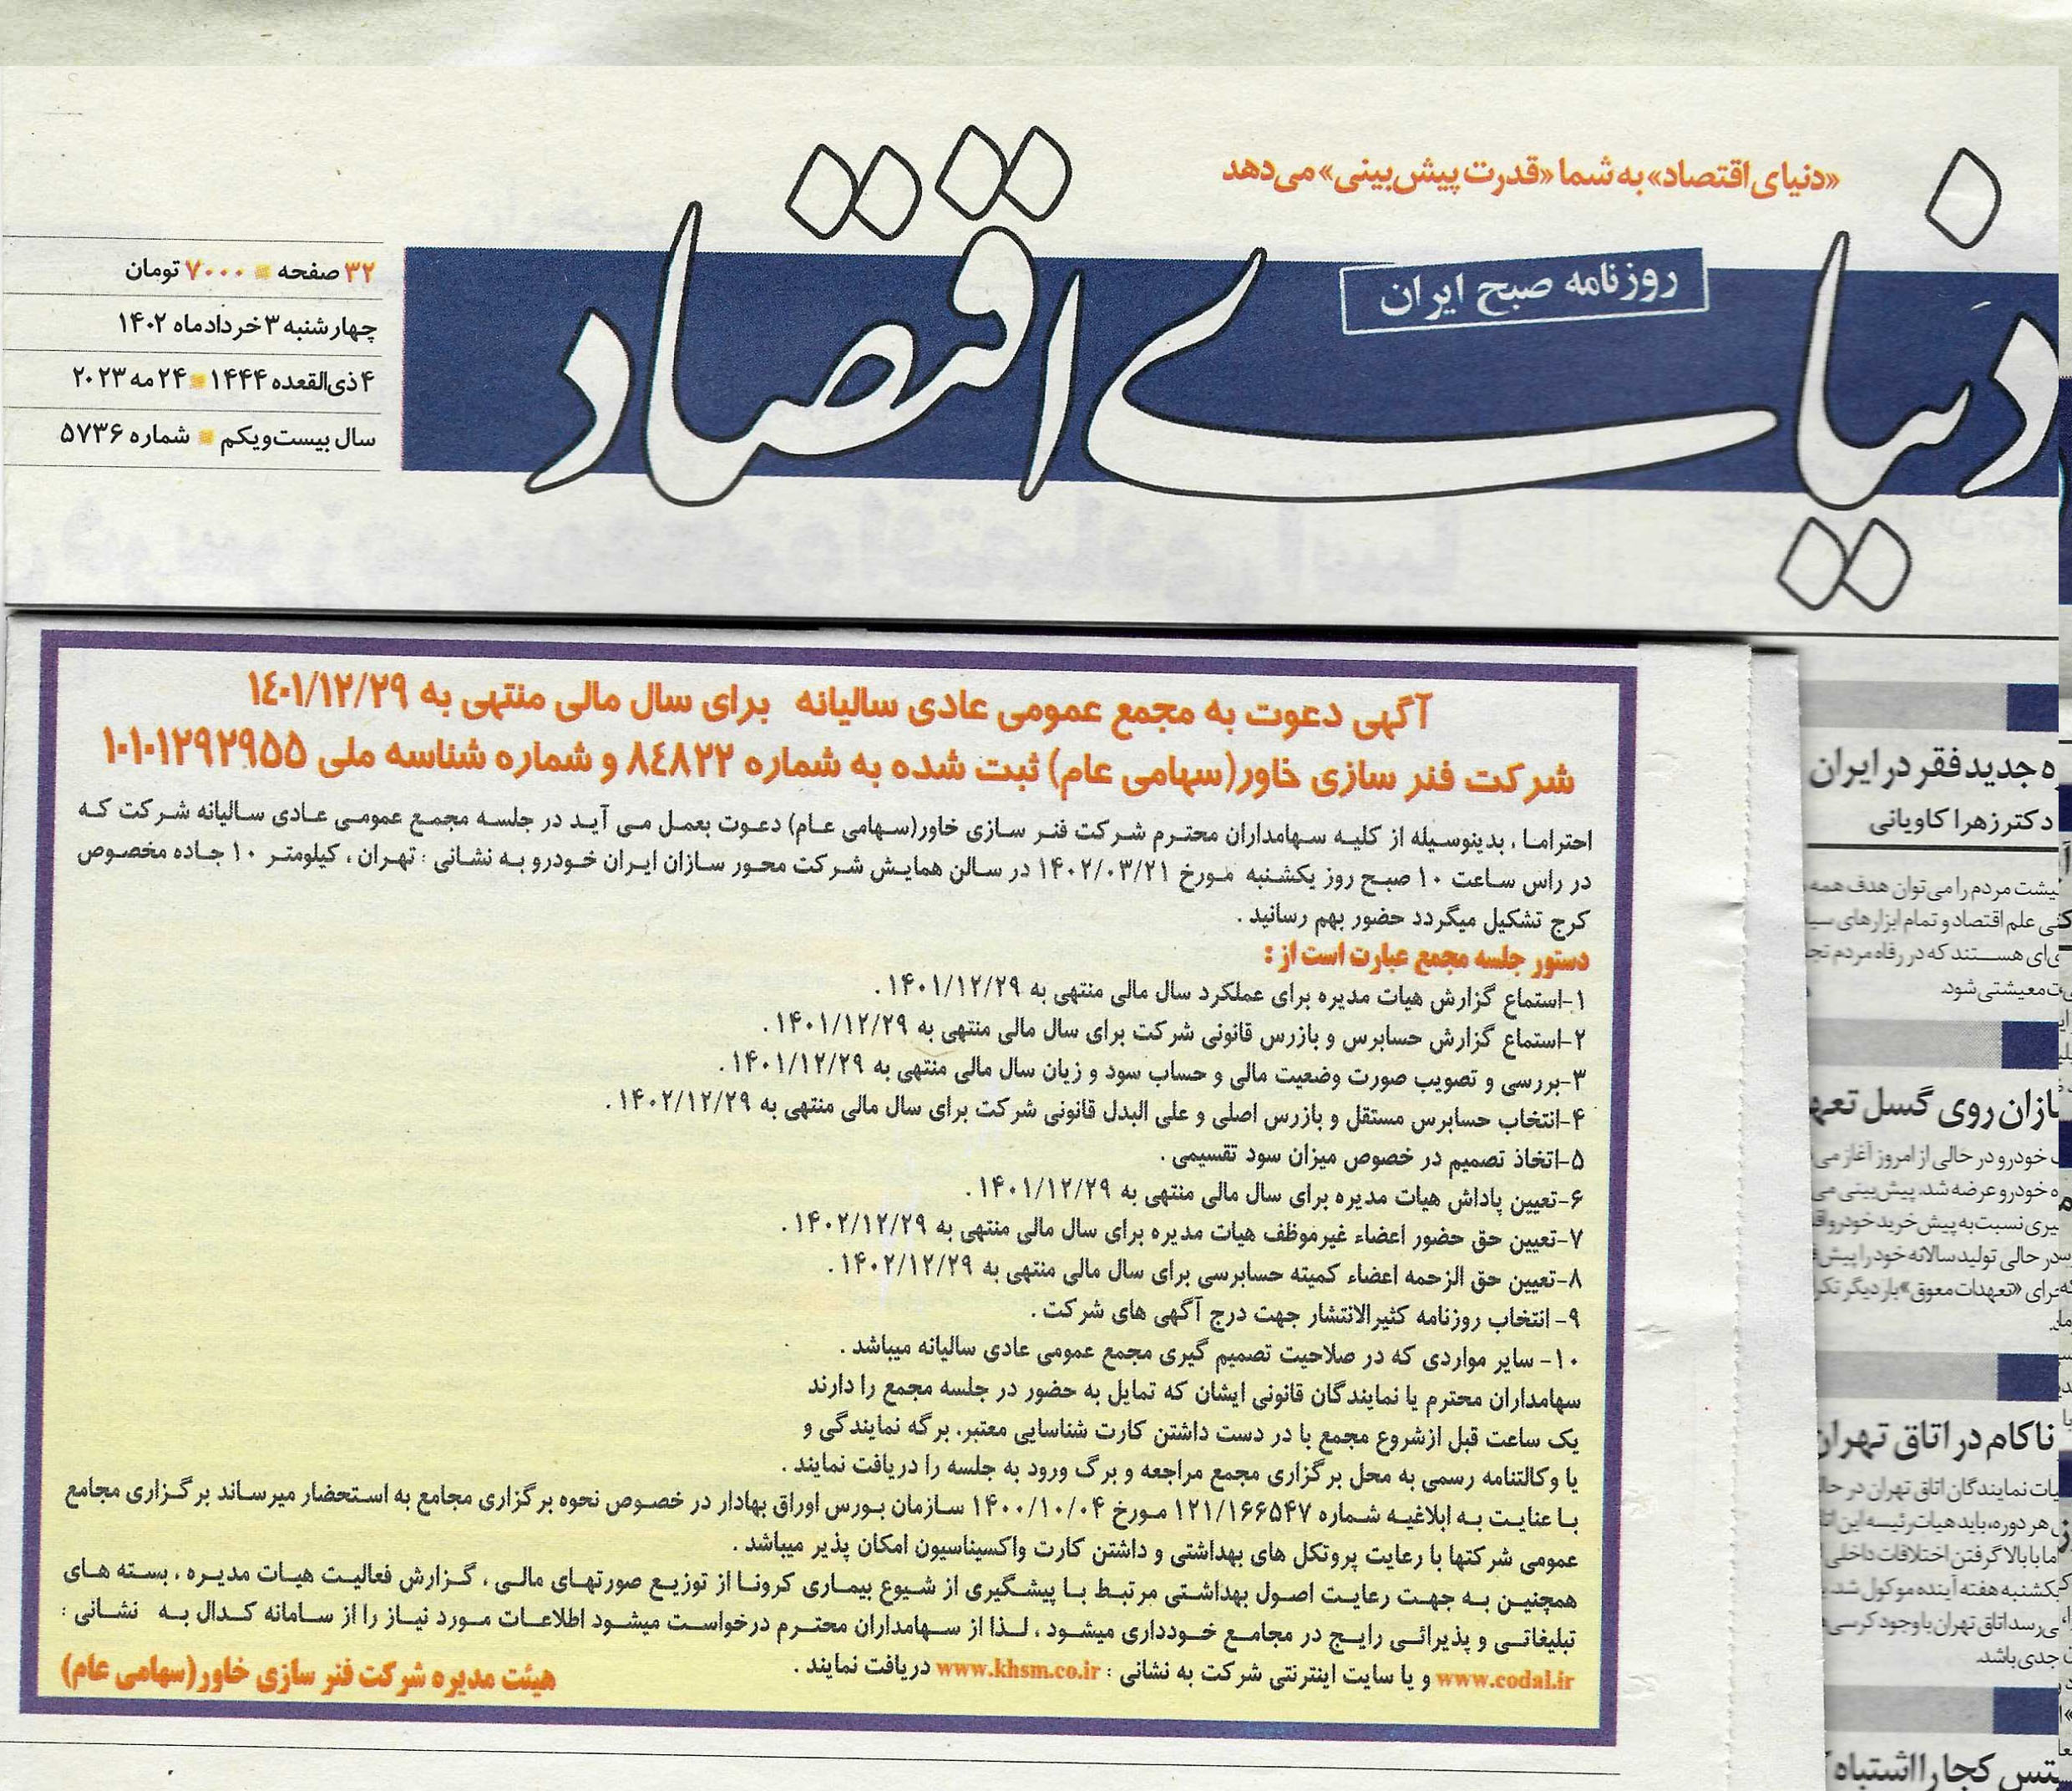 «دنیای اقتصاد» به شما «قدرت پیش‌بینی» می‌دهد
دنیای اقتصاد
روزنامه صبح ایران
۳۲ صفحه ■ ۷۰۰۰ تومان
چهارشنبه ۳ خرداد ماه ۱۴۰۲
۴ ذی‌القعده ۱۴۴۴ ■ ۲۴ مه ۲۰۲۳
سال بیست‌ویکم ■ شماره ۵۷۳۶
آگهی دعوت به مجمع عمومی عادی سالیانه برای سال مالی منتهی به ۱۴۰۱/۱۲/۲۹
شرکت فنر سازی خاور(سهامی عام) ثبت شده به شماره ۸۴۸۲۲ و شماره شناسه ملی ۱۰۱۰۱۲۹۲۹۵۵
احتراما ، بدینوسیله از کلیه سهامداران محترم شرکت فنر سازی خاور(سهامی عام) دعوت بعمل می آید در جلسه مجمع عمومی عادی سالیانه شرکت که
در راس ساعت ۱۰ صبح روز یکشنبه مورخ ۱۴۰۲/۰۳/۲۱ در سالن همایش شرکت محور سازان ایران خودرو به نشانی : تهران ، کیلومتر ۱۰ جاده مخصوص
کرج تشکیل میگردد حضور بهم رسانید .
دستور جلسه مجمع عبارت است از :
۱-استماع گزارش هیات مدیره برای عملکرد سال مالی منتهی به ۱۴۰۱/۱۲/۲۹ .
۲-استماع گزارش حسابرس و بازرس قانونی شرکت برای سال مالی منتهی به ۱۴۰۱/۱۲/۲۹ .
۳-بررسی و تصویب صورت وضعیت مالی و حساب سود و زیان سال مالی منتهی به ۱۴۰۱/۱۲/۲۹ .
۴-انتخاب حسابرس مستقل و بازرس اصلی و علی البدل قانونی شرکت برای سال مالی منتهی به ۱۴۰۲/۱۲/۲۹ .
۵-اتخاذ تصمیم در خصوص میزان سود تقسیمی .
۶-تعیین پاداش هیات مدیره برای سال مالی منتهی به ۱۴۰۱/۱۲/۲۹ .
۷-تعیین حق حضور اعضاء غیرموظف هیات مدیره برای سال مالی منتهی به ۱۴۰۲/۱۲/۲۹ .
۸-تعیین حق الزحمه اعضاء کمیته حسابرسی برای سال مالی منتهی به ۱۴۰۲/۱۲/۲۹ .
۹- انتخاب روزنامه کثیرالانتشار جهت درج آگهی های شرکت .
۱۰- سایر مواردی که در صلاحیت تصمیم گیری مجمع عمومی عادی سالیانه میباشد .
سهامداران محترم یا نمایندگان قانونی ایشان که تمایل به حضور در جلسه مجمع را دارند
یک ساعت قبل ازشروع مجمع با در دست داشتن کارت شناسایی معتبر، برگه نمایندگی و
یا وکالتنامه رسمی به محل برگزاری مجمع مراجعه و برگ ورود به جلسه را دریافت نمایند .
با عنایت به ابلاغیه شماره ۱۲۱/۱۶۶۵۴۷ مورخ ۱۴۰۰/۱۰/۰۴ سازمان بورس اوراق بهادار در خصوص نحوه برگزاری مجامع به استحضار میرساند برگزاری مجامع
عمومی شرکتها با رعایت پروتکل های بهداشتی و داشتن کارت واکسیناسیون امکان پذیر میباشد .
همچنین به جهت رعایت اصول بهداشتی مرتبط با پیشگیری از شیوع بیماری کرونا از توزیع صورتهای مالی ، گزارش فعالیت هیات مدیره ، بسته های
تبلیغاتی و پذیرائی رایج در مجامع خودداری میشود ، لذا از سهامداران محترم درخواست میشود اطلاعات مورد نیاز را از سامانه کدال به نشانی :
www.codal.ir و یا سایت اینترنتی شرکت به نشانی : www.khsm.co.ir دریافت نمایند .
هیئت مدیره شرکت فنر سازی خاور(سهامی عام)
جدید فقر در ایران
دکتر زهرا کاویانی
مردم را می‌توان هدف همه
علم اقتصاد و تمام ابزارهای
هستند که در رفاه مردم
معیشتی شود.
روی گسل
خودرو در حالی از امروز آغاز
خودرو عرضه شد. پیش‌بینی
نسبت به پیش خرید خودرو
در حالی تولید سالانه خود را
«تعهدات معوق» بار دیگر
ناکام در اتاق تهران
نمایندگان اتاق تهران در
هر دوره، باید هیات‌رئیسه این
اما با بالا گرفتن اختلافات داخلی
یکشنبه هفته آینده موکول شد.
اتاق تهران با وجود کرسی
جدی باشد.
کجا را اشتباه